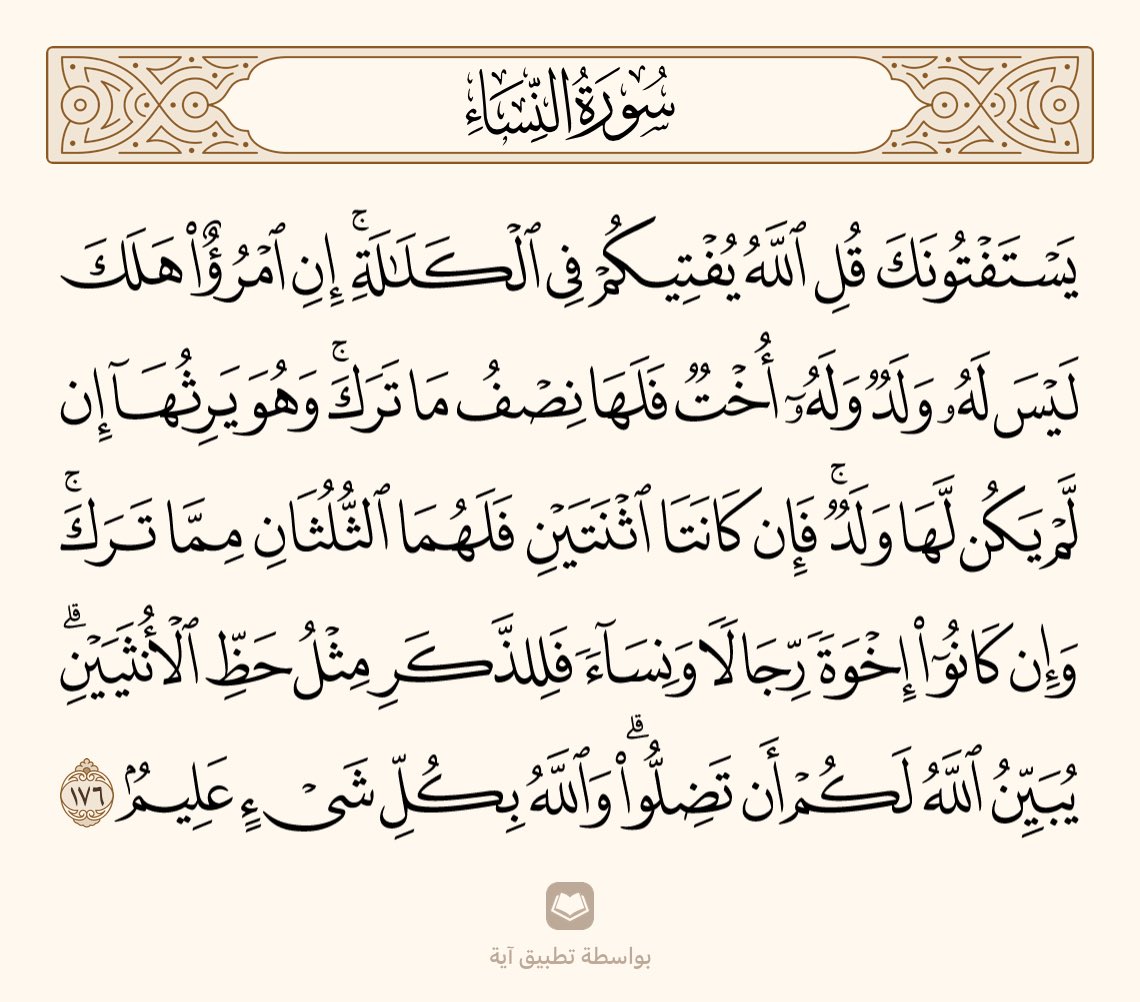 سُورَةُ النِّسَاءِ
يَسْتَفْتُونَكَ قُلِ ٱللَّهُ يُفْتِيكُمْ فِى ٱلْكَلَـٰلَةِ ۚ إِنِ ٱمْرُؤٌا۟ هَلَكَ
لَيْسَ لَهُۥ وَلَدٌ وَلَهُۥٓ أُخْتٌ فَلَهَا نِصْفُ مَا تَرَكَ ۚ وَهُوَ يَرِثُهَآ إِن
لَّمْ يَكُن لَّهَا وَلَدٌ ۚ فَإِن كَانَتَا ٱثْنَتَيْنِ فَلَهُمَا ٱلثُّلُثَانِ مِمَّا تَرَكَ ۚ
وَإِن كَانُوٓا۟ إِخْوَةً رِّجَالًا وَنِسَآءً فَلِلذَّكَرِ مِثْلُ حَظِّ ٱلْأُنثَيَيْنِ ۗ
يُبَيِّنُ ٱللَّهُ لَكُمْ أَن تَضِلُّوا۟ ۗ وَٱللَّهُ بِكُلِّ شَىْءٍ عَلِيمٌۢ ١٧٦
بواسطة تطبيق آية